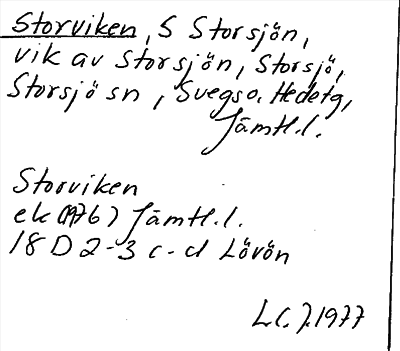 Storviken, S Storsjön,
vik av Storsjön, Storsjö,
Storsjö sn, Svegs o. Hedetg,
Jämtl.l.
Storviken
ek (1976) Jämtl.l.
18 D 2-3 c-d Lövön
L.C.J. 1977